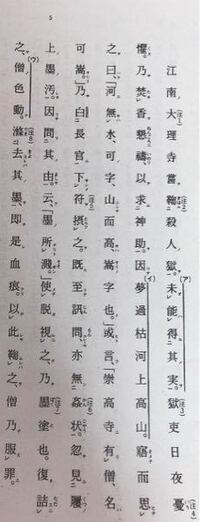 江南大理寺嘗鞫殺人獄、未能得其実。獄吏日夜憂
懼、乃焚香懇禱以求神助。因夢過枯河上高山。寤而思
之曰、「河無水、可字。山而高、嵩字也。」或言、「崇高寺有僧、名
可嵩。」乃白長官、下符摂之。既至訊問、亦無姦状。忽見履
上墨汚。因問其由。云、「墨所濺。」使脱視之、乃墨塗也。復詰
之、僧色動。滌去其墨、即是血痕。以此鞫之、僧乃服罪。
(ア)
(イ)
(ウ)